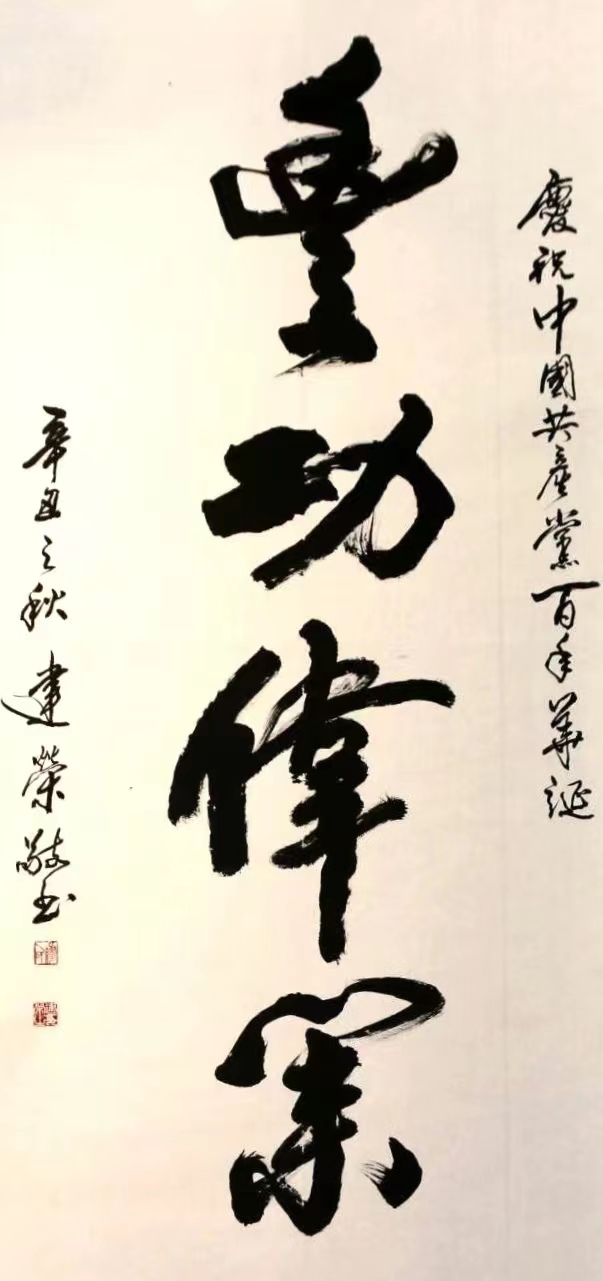 慶祝中國共產黨百年華誕
豐功偉業
辛丑之秋 建榮敬書